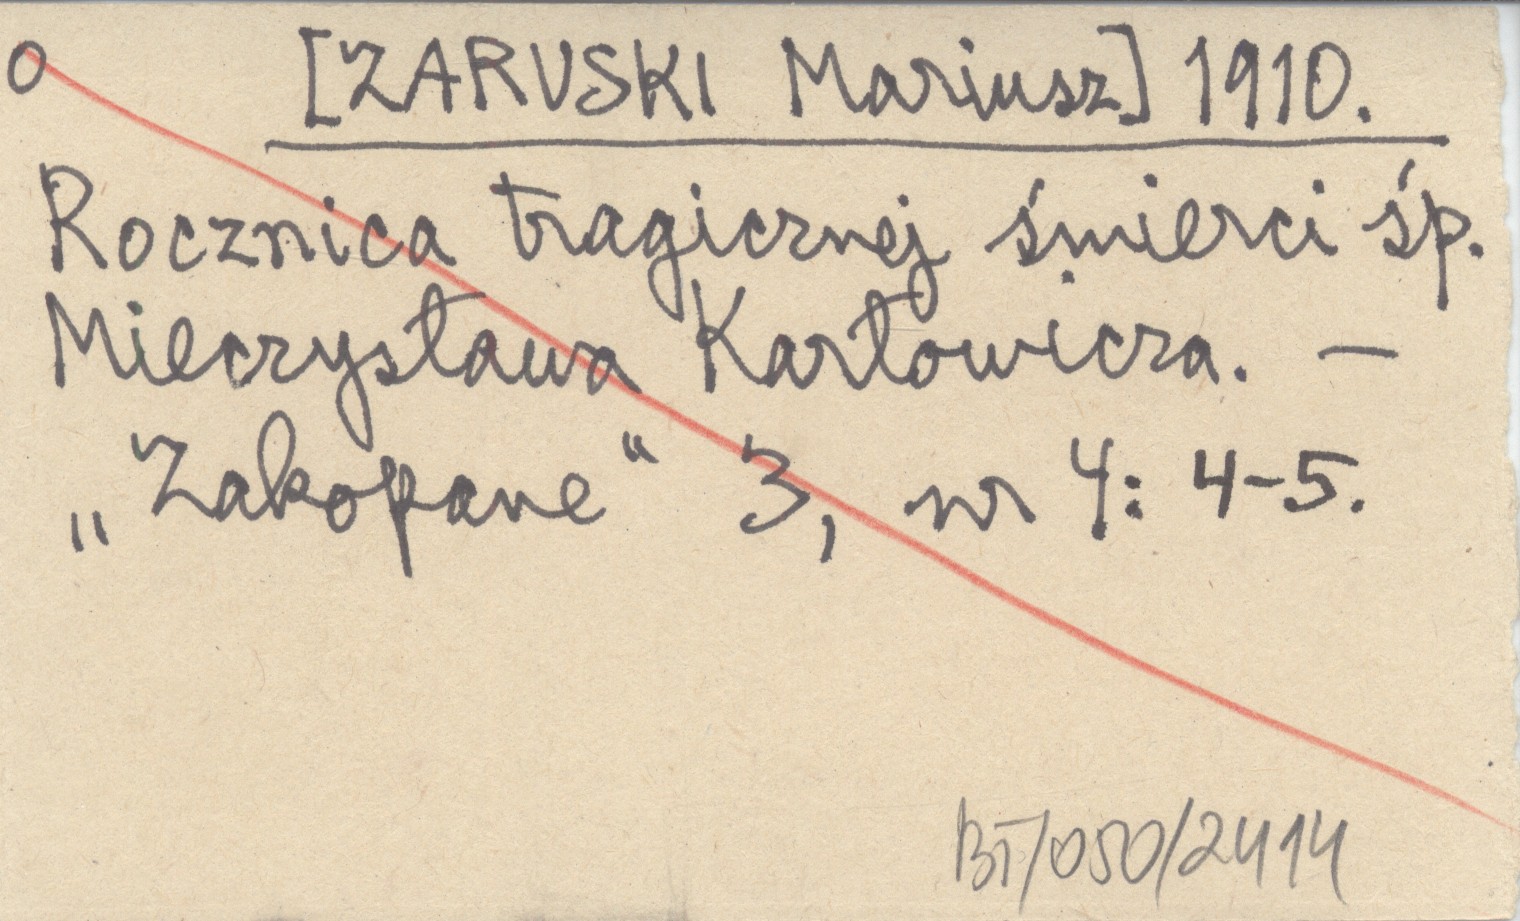 o [ZARUSKI Mariusz] 1910.
Rocznica tragicznej śmierci śp.
Mieczysława Karłowicza. —
„Zakopane“ 3, nr 4: 4-5.
BT/050/2414